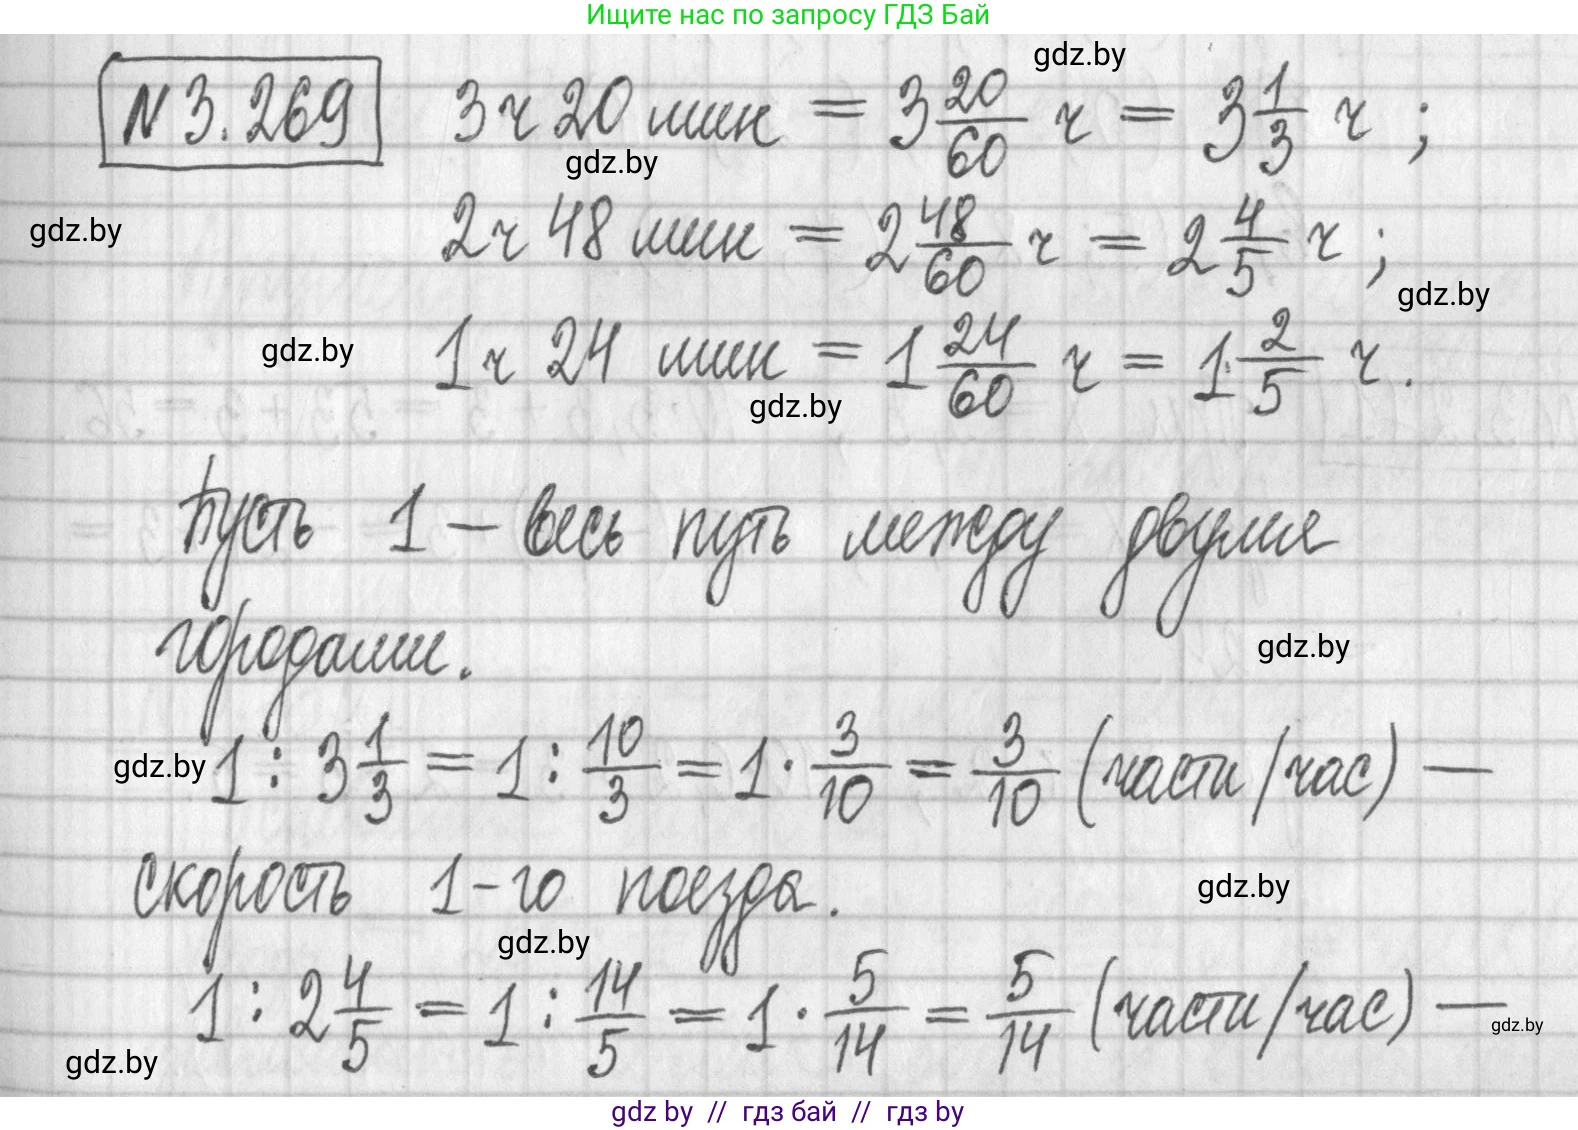 Ищите нас по запросу ГДЗ Бай
gdz.by
№ 3.269 3 ч 20 мин = 3 20/60 ч = 3 1/3 ч ;
gdz.by
gdz.by
2 ч 48 мин = 2 48/60 ч = 2 4/5 ч ;
gdz.by
gdz.by
1 ч 24 мин = 1 24/60 ч = 1 2/5 ч .
gdz.by
Пусть 1 – весь путь между двумя
городами.
gdz.by
gdz.by
1 : 3 1/3 = 1 : 10/3 = 1 · 3/10 = 3/10 (части/час) —
скорость 1-го поезда.
gdz.by
gdz.by
1 : 2 4/5 = 1 : 14/5 = 1 · 5/14 = 5/14 (части/час) —
gdz.by
gdz.by
gdz by // гдз бай // гдз by